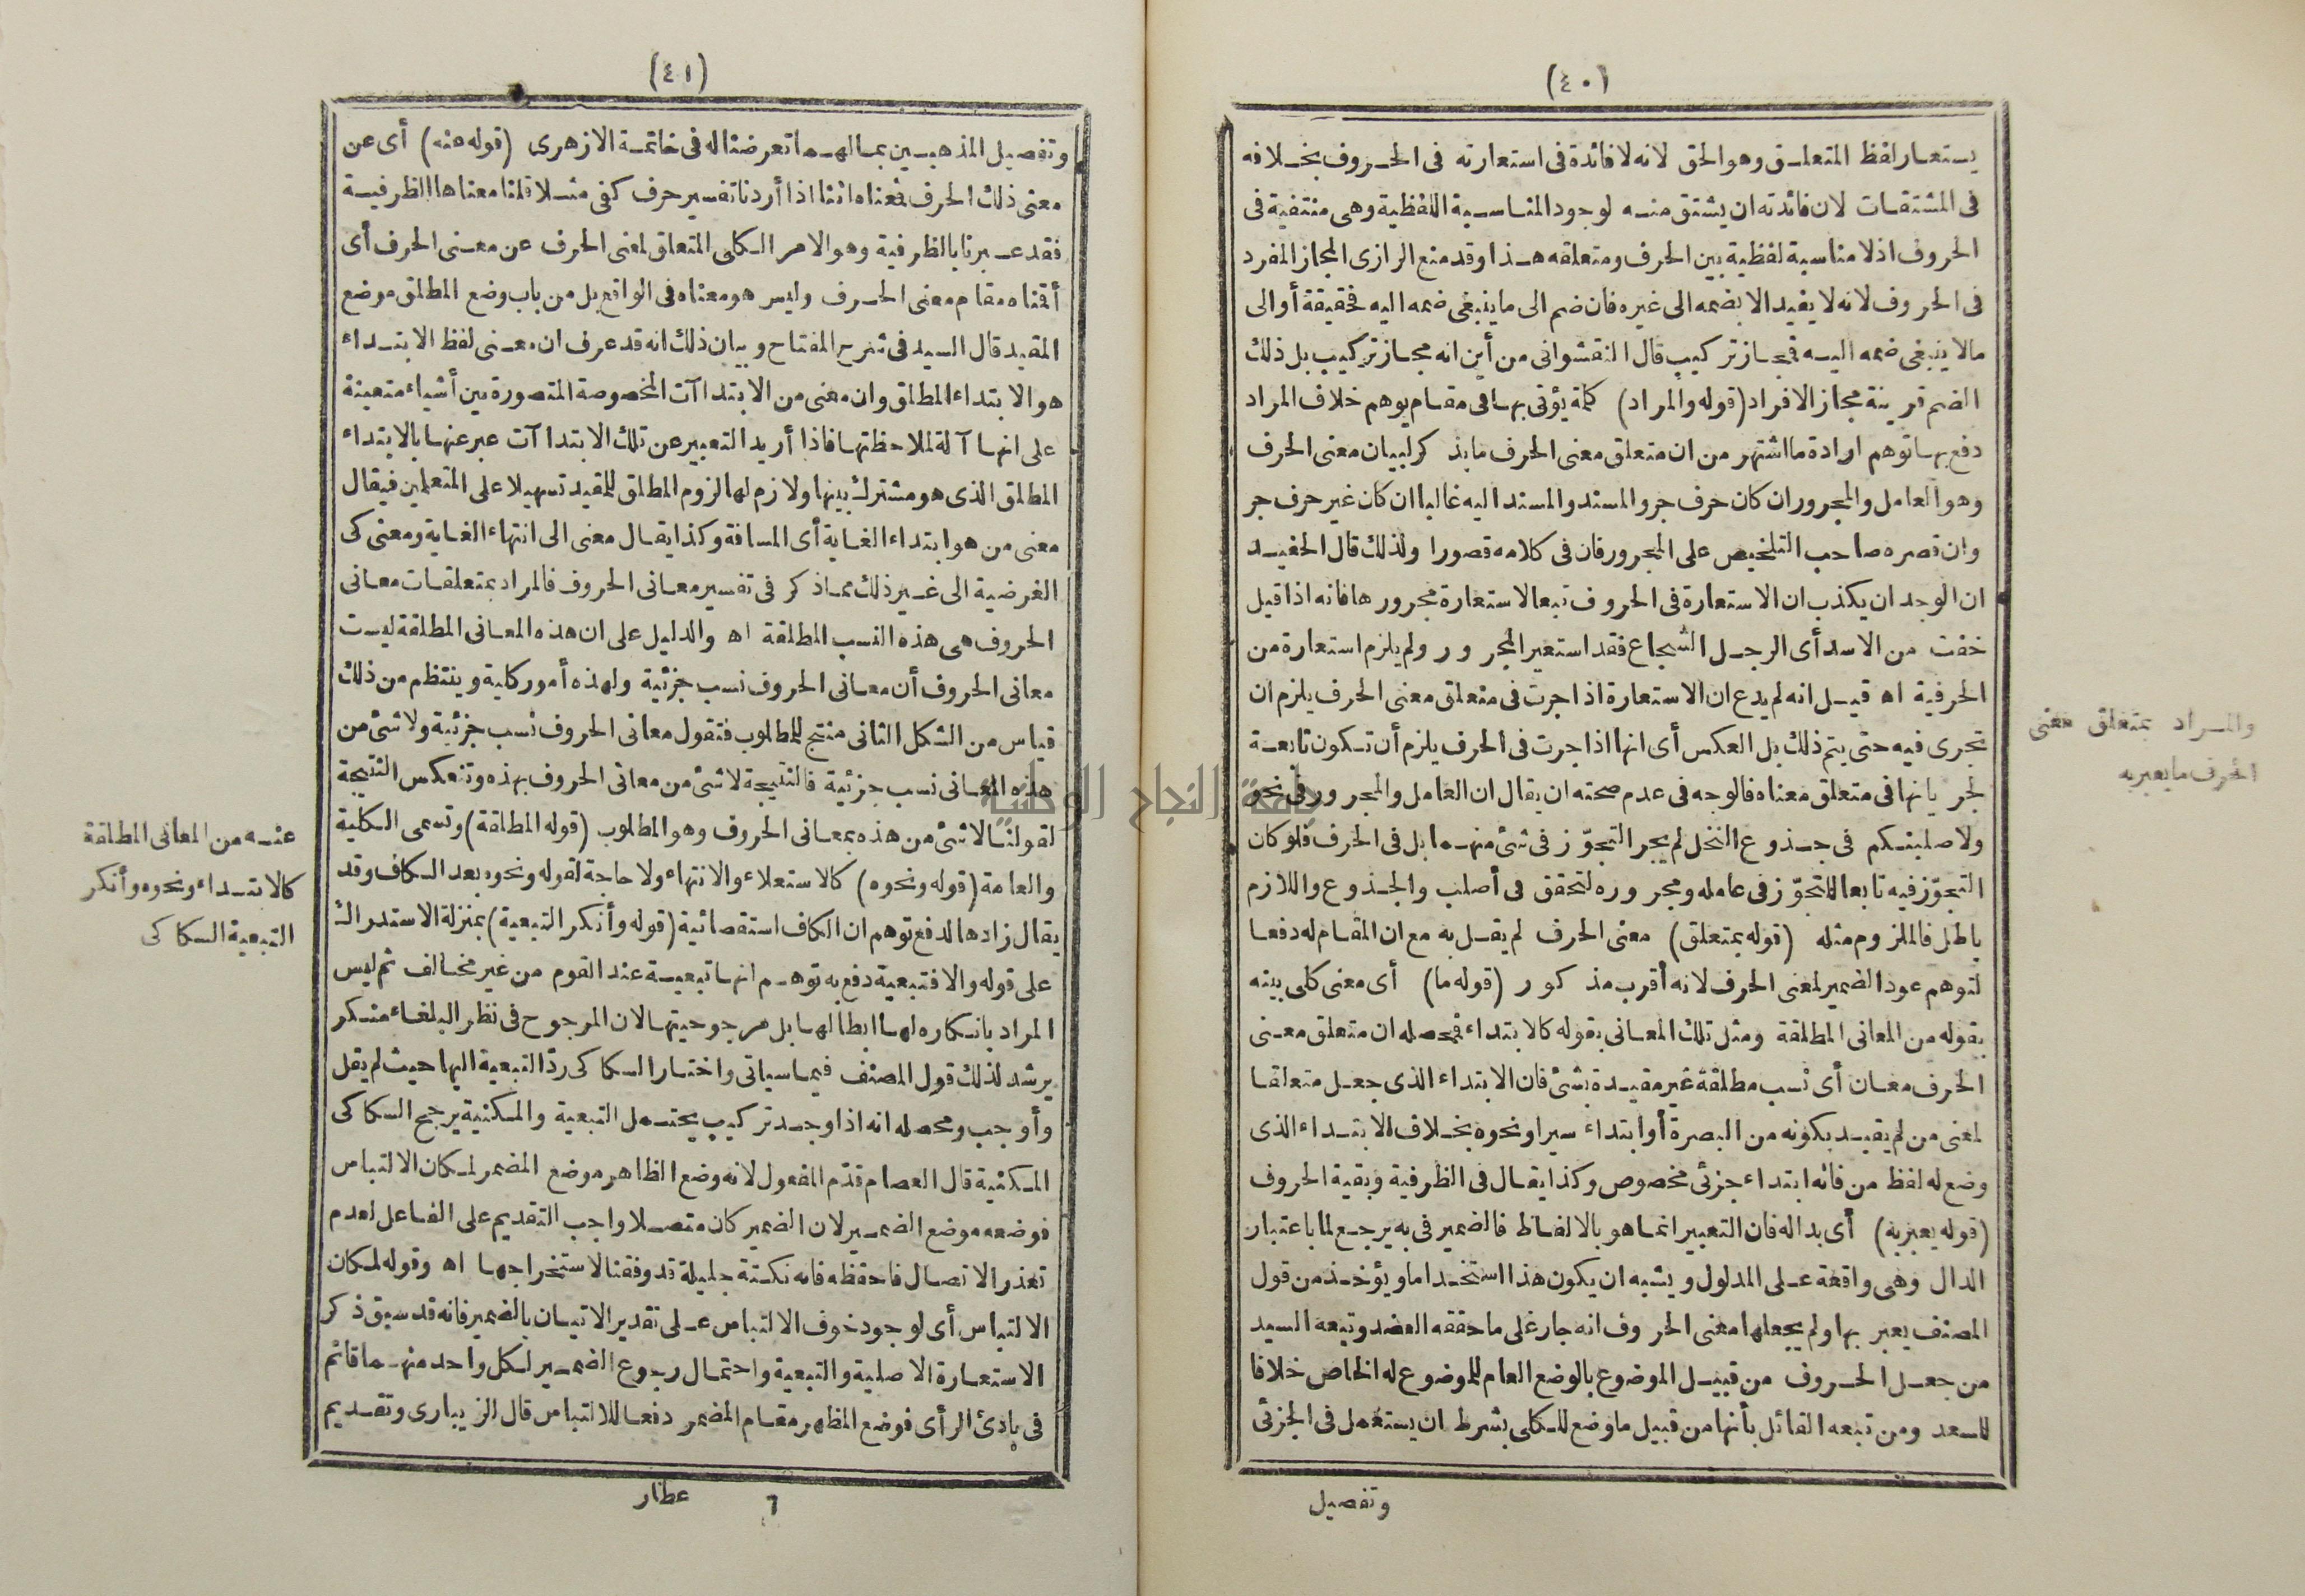 (٤٠)
يستعار لفظ المتعلق وهو الحق لانه لا فائدة فى استعارته فى الحروف بخلافه
فى المشتقات لان فائدته ان يشتق منه لوجود المناسبة اللفظية وهى منتفية فى
الحروف اذ لا مناسبة لفظية بين الحرف ومتعلقه هذا وقد منع الرازى المجاز المفرد
فى الحروف لانه لا يفيد الا بضمه الى غيره فان ضم الى ما ينبغى ضمه اليه فحقيقة أو الى
مالا ينبغى ضمه اليه فمجاز تركيب قال النقشوانى من أين انه مجاز تركيب بل ذلك
الضم قرينة مجاز الافراد (قوله والمراد) كلمة يؤتى بها فى مقام يوهم خلاف المراد
دفع بها توهم ارادة ما اشتهر من ان متعلق معنى الحرف ما يذكر لبيان معنى الحرف
وهو العامل والمجرور ان كان حرف جر والمسند والمسند اليه غالبا ان كان غير حرف جر
وان قصره صاحب التلخيص على المجرور فان فى كلامه قصورا ولذلك قال الحفيد
ان الوجدان يكذب ان الاستعارة فى الحروف تبعا لاستعارة مجرورها فانه اذا قيل
خفت من الاسد أى الرجل الشجاع فقد استعير المجرور ولم يلزم استعارة من
الحرفية اه قيل انه لم يدع ان الاستعارة اذا جرت فى متعلق معنى الحرف يلزم ان
تجرى فيه حتى يتم ذلك بل العكس أى انها اذا جرت فى الحرف يلزم أن تكون تابعة
لجريانها فى متعلق معناه فالوجه فى عدم صحته ان يقال ان العامل والمجرور فى نحو
ولاصلبنكم فى جذوع النخل لم يجر التجوّز فى شئ منهما بل فى الحرف فلو كان
التجوّز فيه تابعا للتجوّز فى عامله ومجروره لتحقق فى أصلب والجذوع واللازم
باطل فالملزوم مثله (قوله بمتعلق) معنى الحرف لم يقل به مع ان المقام له دفعا
لتوهم عود الضمير لمعنى الحرف لانه أقرب مذكور (قوله ما) أى معنى كلى بينه
بقوله من المعانى المطلقة ومثل تلك المعانى بقوله كالابتداء فمحصله ان متعلق معنى
الحرف معان أى نسب مطلقة غير مقيدة بشئ فان الابتداء الذى جعل متعلقا
لمعنى من لم يقيد بكونه من البصرة أو ابتداء سير او نحوه بخلاف الابتداء الذى
وضع له لفظ من فانه ابتداء جزئى مخصوص وكذا يقال فى الظرفية وبقية الحروف
(قوله يعبر به) أى بداله فان التعبير انما هو بالالفاظ فالضمير فى به يرجع لما باعتبار
الدال وهى واقعة على المدلول ويشبه ان يكون هذا استخداما ويؤخذ من قول
المصنف يعبر بها ولم يجعلها معنى الحروف انه جار على ما حققه العضد وتبعه السيد
من جعل الحروف من قبيل الموضوع بالوضع العام للموضوع له الخاص خلافا
للسعد ومن تبعه القائل بأنها من قبيل ما وضع للكلى بشرط ان يستعمل فى الجزئى
وتفصيل
والمراد بمتعلق معنى
الحرف ما يعبر به
(٤١)
وتفصيل المذهبين بمالهما تعرضنا له فى خاتمة الازهرى (قوله عنه) أى عن
معنى ذلك الحرف فمعناه اننا اذا أردنا تفسير حرف كفى مثلا قلنا معناها الظرفية
فقد عبرنا بالظرفية وهو الامر الكلى المتعلق لمعنى الحرف عن معنى الحرف أى
أقمناه مقام معنى الحرف وليس هو معناه فى الواقع بل من باب وضع المطلق موضع
المقيد قال السيد فى شرح المفتاح وبيان ذلك انه قد عرف ان معنى لفظ الابتداء
هو الابتداء المطلق وان معنى من الابتدا آت المخصوصة المتصورة بين أشياء متعينة
على انها آلة لملاحظتها فاذا أريد التعبير عن تلك الابتدا آت عبر عنها بالابتداء
المطلق الذى هو مشترك بينها ولازم لها لزوم المطلق للمقيد تسهيلا على المتعلمين فيقال
معنى من هو ابتداء الغاية أى المسافة وكذا يقال معنى الى انتهاء الغاية ومعنى كى
الغرضية الى غير ذلك مما ذكر فى تفسير معانى الحروف فالمراد بمتعلقات معانى
الحروف هى هذه النسب المطلقة اه والدليل على ان هذه المعانى المطلقة ليست
معانى الحروف أن معانى الحروف نسب جزئية ولهذه أمور كلية وينتظم من ذلك
قياس من الشكل الثانى منتج للمطلوب فنقول معانى الحروف نسب جزئية ولا شئ من
هذه المعانى نسب جزئية فالنتيجة لاشئ من معانى الحروف بهذه وتنعكس النتيجة
لقولنا لاشئ من هذه بمعانى الحروف وهو المطلوب (قوله المطلقة) وتسمى الكلية
والعامة (قوله ونحوه) كالاستعلاء والانتهاء ولا حاجة لقوله ونحوه بعد الكاف وقد
يقال زادها لدفع توهم ان الكاف استقصائية (قوله وأنكر التبعية) بمنزلة الاستدراك
على قوله والا فتبعية دفع به توهم انها تبعية عند القوم من غير مخالف ثم ليس
المراد بانكاره لها ابطالها بل مرجوحيتها لان المرجوح فى نظر البلغاء منكر
يرشد لذلك قول المصنف فيما سياتى واختار السكاكى ردّ التبعية اليها حيث لم يقل
وأوجب ومحصله انه اذا وجد تركيب يحتمل التبعية والمكنية يرجح السكاكى
المكنية قال العصام قدّم المفعول لانه وضع الظاهر موضع المضمر لمكان الالتباس
فوضعه موضع الضمير لان الضمير كان متصلا واجب التقديم على الفاعل لعدم
تعذر الاتصال فاحفظه فانه نكتة جليلة قد وفقنا لاستخراجها اه وقوله لمكان
الالتباس أى لوجود خوف الالتباس على تقدير الاتيان بالضمير فانه قد سبق ذكر
الاستعارة الاصلية والتبعية واحتمال رجوع الضمير لكل واحد منهما قائم
فى بادئ الرأى فوضع المظهر مقام المضمر دفعا للالتباس قال الزيبارى وتقديم
٦ عطار
عنه من المعانى المطلقة
كالابتداء ونحوه وأنكر
التبعية السكاكى
جامعة النجاح الوطنية